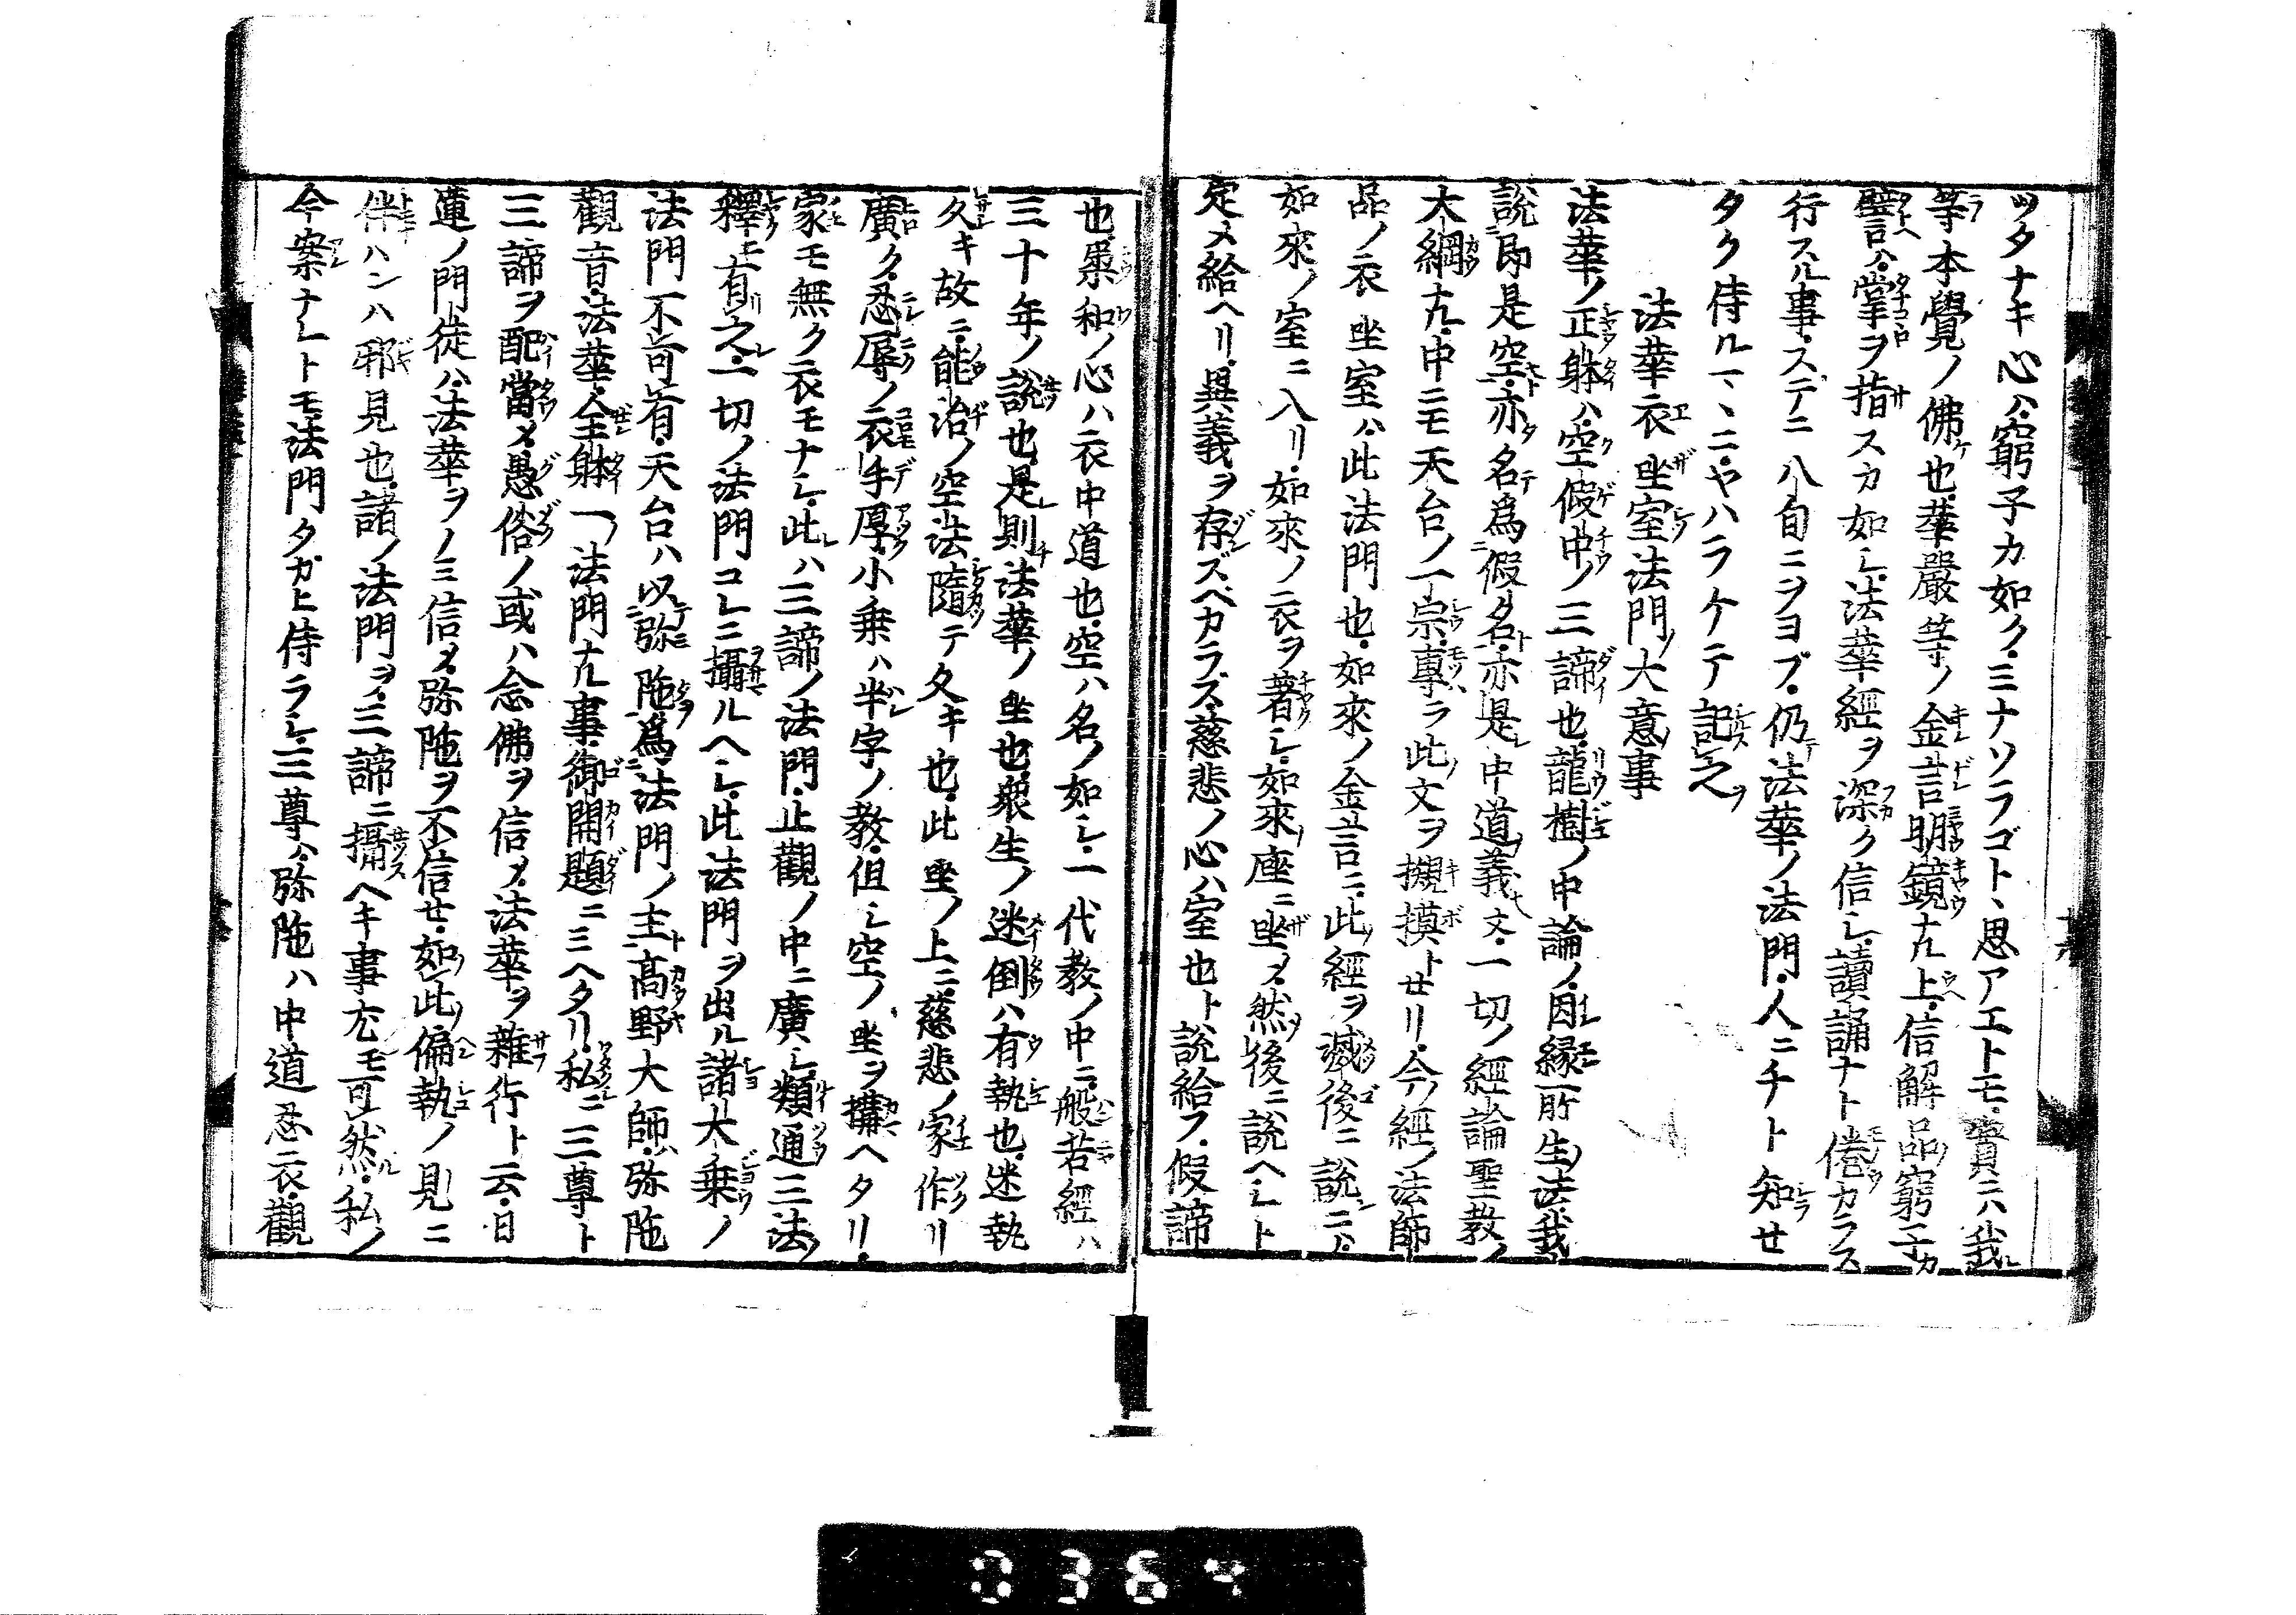 ツタナキ心ハ窮子カ如ク・ミナソラゴト、思アエトモ・實ニハ我
等本覺ノ佛也・華嚴等ノ金言明鏡ナル上・信解品窮子カ
譬ハ掌ヲ指スカ如シ・法華經ヲ深ク信シ・讀誦ナト倦カラス
行スル事・ステニ八旬ニヲヨブ・仍法華ノ法門・人ニチト知せ
タク侍ルマヽニ・ヤハラケテ記之
法華衣坐室法門ノ大意事
法華ノ正躰ハ空假中ノ三諦也・龍樹ノ中論ノ・因縁所生法我
說即是空・亦名爲假名・亦是中道義文・一切ノ經論聖教ノ
大綱ナル中ニモ天台ノ一宗・專ラ此文ヲ規摸トせリ・今ノ經ノ法師
品ノ衣坐室ハ此法門也・如來ノ金言ニ・此經ヲ滅後ニ說ニハ・
如來ノ室ニ入リ・如來ノ衣ヲ著シ・如來ノ座ニ坐メ然後ニ說ヘシト
定メ給ヘリ・異義ヲ存ズベカラズ・慈悲ノ心ハ室也ト說給フ・假諦
也・柔和ノ心ハ衣中道也・空ハ名ノ如シ・一代教ノ中ニ般若經ハ
三十年ノ說也・是則法華ノ坐也・衆生ノ迷倒ハ有執也・迷執
久キ故ニ・能治ノ空法隨テ久キ也・此坐ノ上ニ・慈悲ノ家作リ
廣ク・忍辱ノ衣手厚・小乗ハ半字ノ教・但シ空ノ坐ヲ搆ヘタリ・
家モ無ク衣モナシ・此ハ三諦ノ法門・止觀ノ中ニ廣シ・類通三法ノ
釋モ有之・一切ノ法門コレニ攝ルヘシ・此法門ヲ出ル諸大乗ノ
法門不可有・天台ハ以弥陁爲法門ノ主・高野大師ハ弥陁
觀音・法華ノ全躰一ノ法門ナル事・御開題ニミヘタリ・私ニ三尊ト
三諦ヲ配當メ・愚俗ノ或ハ念佛ヲ信メ法華ヲ雜行ト云・日
蓮ノ門徒ハ・法華ヲノミ信メ・弥陁ヲ不信せ・如此偏執ノ見ニ
伴ハンハ邪見也・諸ノ法門ヲ・三諦ニ攝ヘキ事尤モ可然・私ノ
今案ナレトモ・法門タガヒ侍ラシ・三尊ハ弥陁ハ中道忍衣・觀